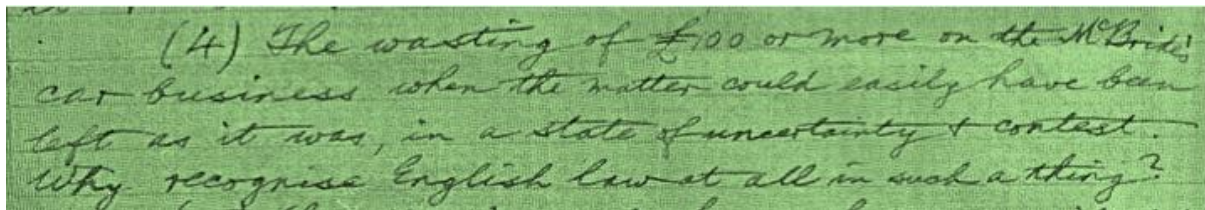 (4) The wasting of £100 or more on the McBride's
car business when the matter could easily have been
left as it was, in a state of uncertainty & contest.
Why recognise English law at all in such a thing?